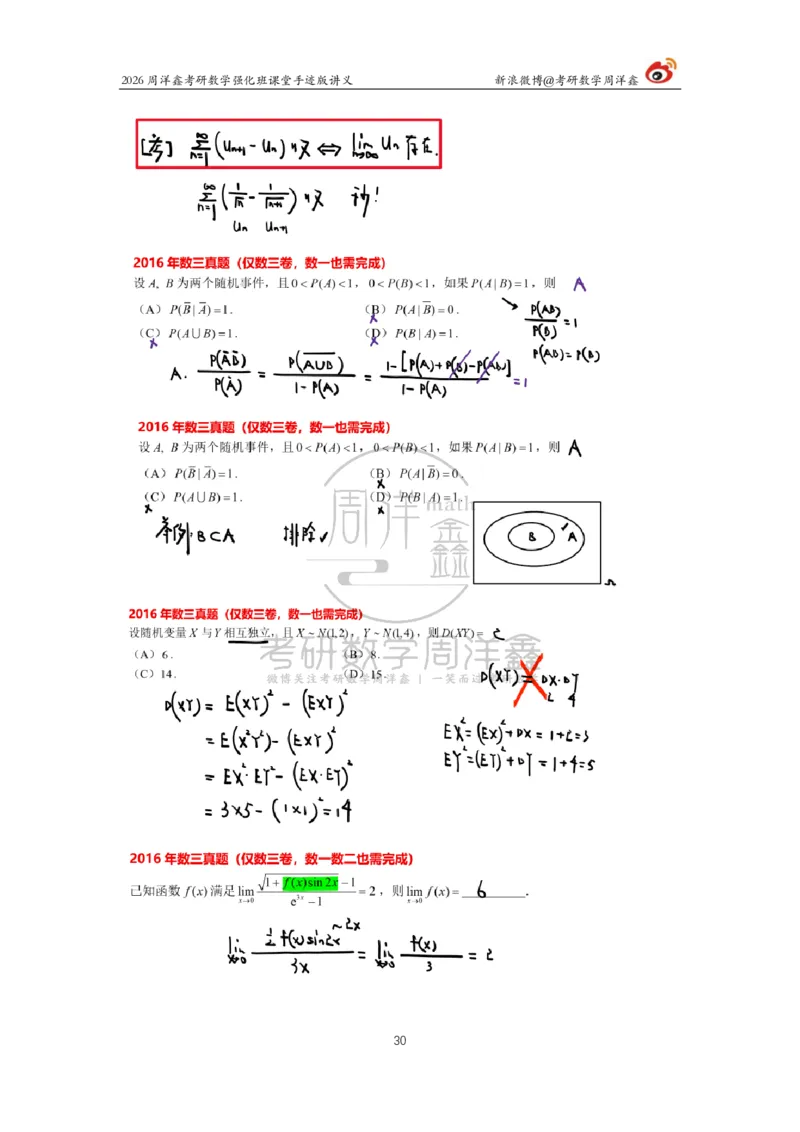 2026周洋鑫考研数学强化班课堂手迹版讲义 新浪微博@考研数学周洋鑫
[考] ∑_{n=1}^{∞}(U_{n+1}-U_n)收敛 ⇔ lim_{n→∞} U_n 存在.
∑_{n=1}^{∞}(1/√n - 1/√(n+1))收敛 秒!
U_n U_{n+1}
2016年数三真题(仅数三卷,数一也需完成)
设A, B为两个随机事件,且0<P(A)<1,0<P(B)<1,如果P(A|B)=1,则 A
(A)P(B̅|A̅)=1. (B)P(A|B̅)=0.
(C)P(A∪B)=1. (D)P(B|A)=1.
× × ×
→ P(AB)/P(B)=1
P(AB)=P(B)
A. P(A̅B̅)/P(A̅) = P(\overline{A∪B})/(1-P(A)) = (1-[P(A)+P(B)-P(AB)])/(1-P(A)) =1
2016年数三真题(仅数三卷,数一也需完成)
设A, B为两个随机事件,且0<P(A)<1,0<P(B)<1,如果P(A|B)=1,则 A
(A)P(B̅|A̅)=1. (B)P(A|B̅)=0.
(C)P(A∪B)=1. (D)P(B|A)=1.
× × ×
举例:B⊂A 排除✓
B A Ω
周洋鑫
math
2016年数三真题(仅数三卷,数一也需完成)
设随机变量X与Y相互独立,且X~N(1,2),Y~N(1,4),则D(XY)= C
(A)6. (B)8.
(C)14. (D)15.
考研数学周洋鑫
微博关注考研数学周洋鑫 | 一笑而过
D(XY)=DX·DY
2 4
D(XY)=E(XY)²-(EXY)²
=E(X²Y²)-(EXY)²
=EX²·EY²-(EX·EY)²
=3×5-(1×1)²=14
EX²=(EX)²+DX=1+2=3
EY²=(EY)²+DY=1+4=5
2016年数三真题(仅数三卷,数一数二也需完成)
已知函数f(x)满足lim_{x→0} (√(1+f(x)sin2x)-1)/(e^{3x}-1)=2,则lim_{x→0} f(x)= 6.
lim_{x→0} (½f(x)sin2x ~2x)/(3x) = lim_{x→0} f(x)/3 = 2
30